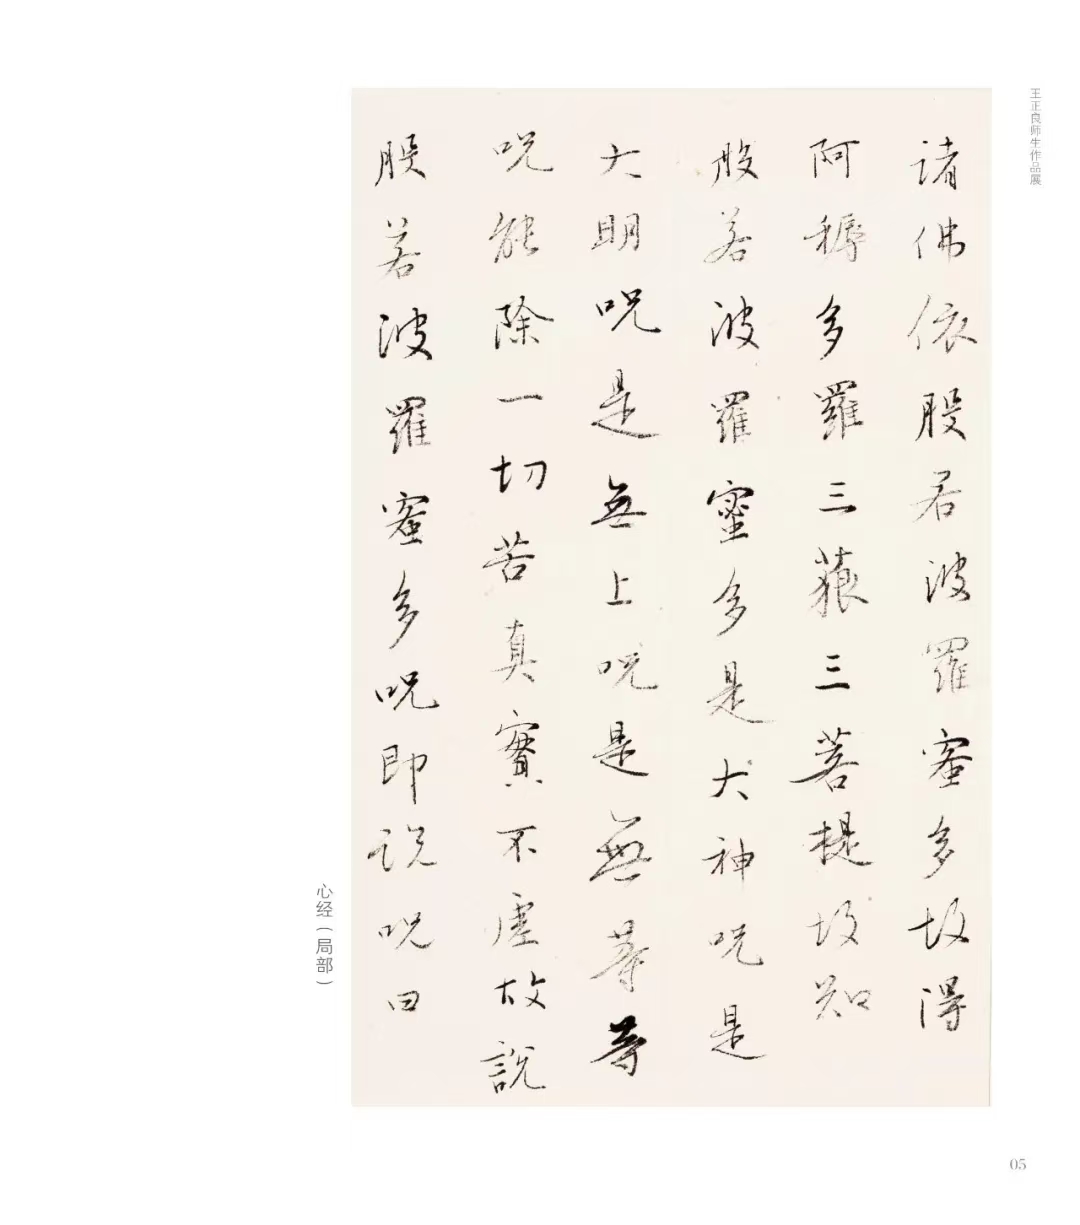 王正良师生作品展
諸佛依般若波羅蜜多故得
阿耨多羅三藐三菩提故知
般若波羅蜜多是大神呪是
大明呪是無上呪是無等等
呪能除一切苦真實不虛故說
般若波羅蜜多呪即說呪曰
心经（局部）
05